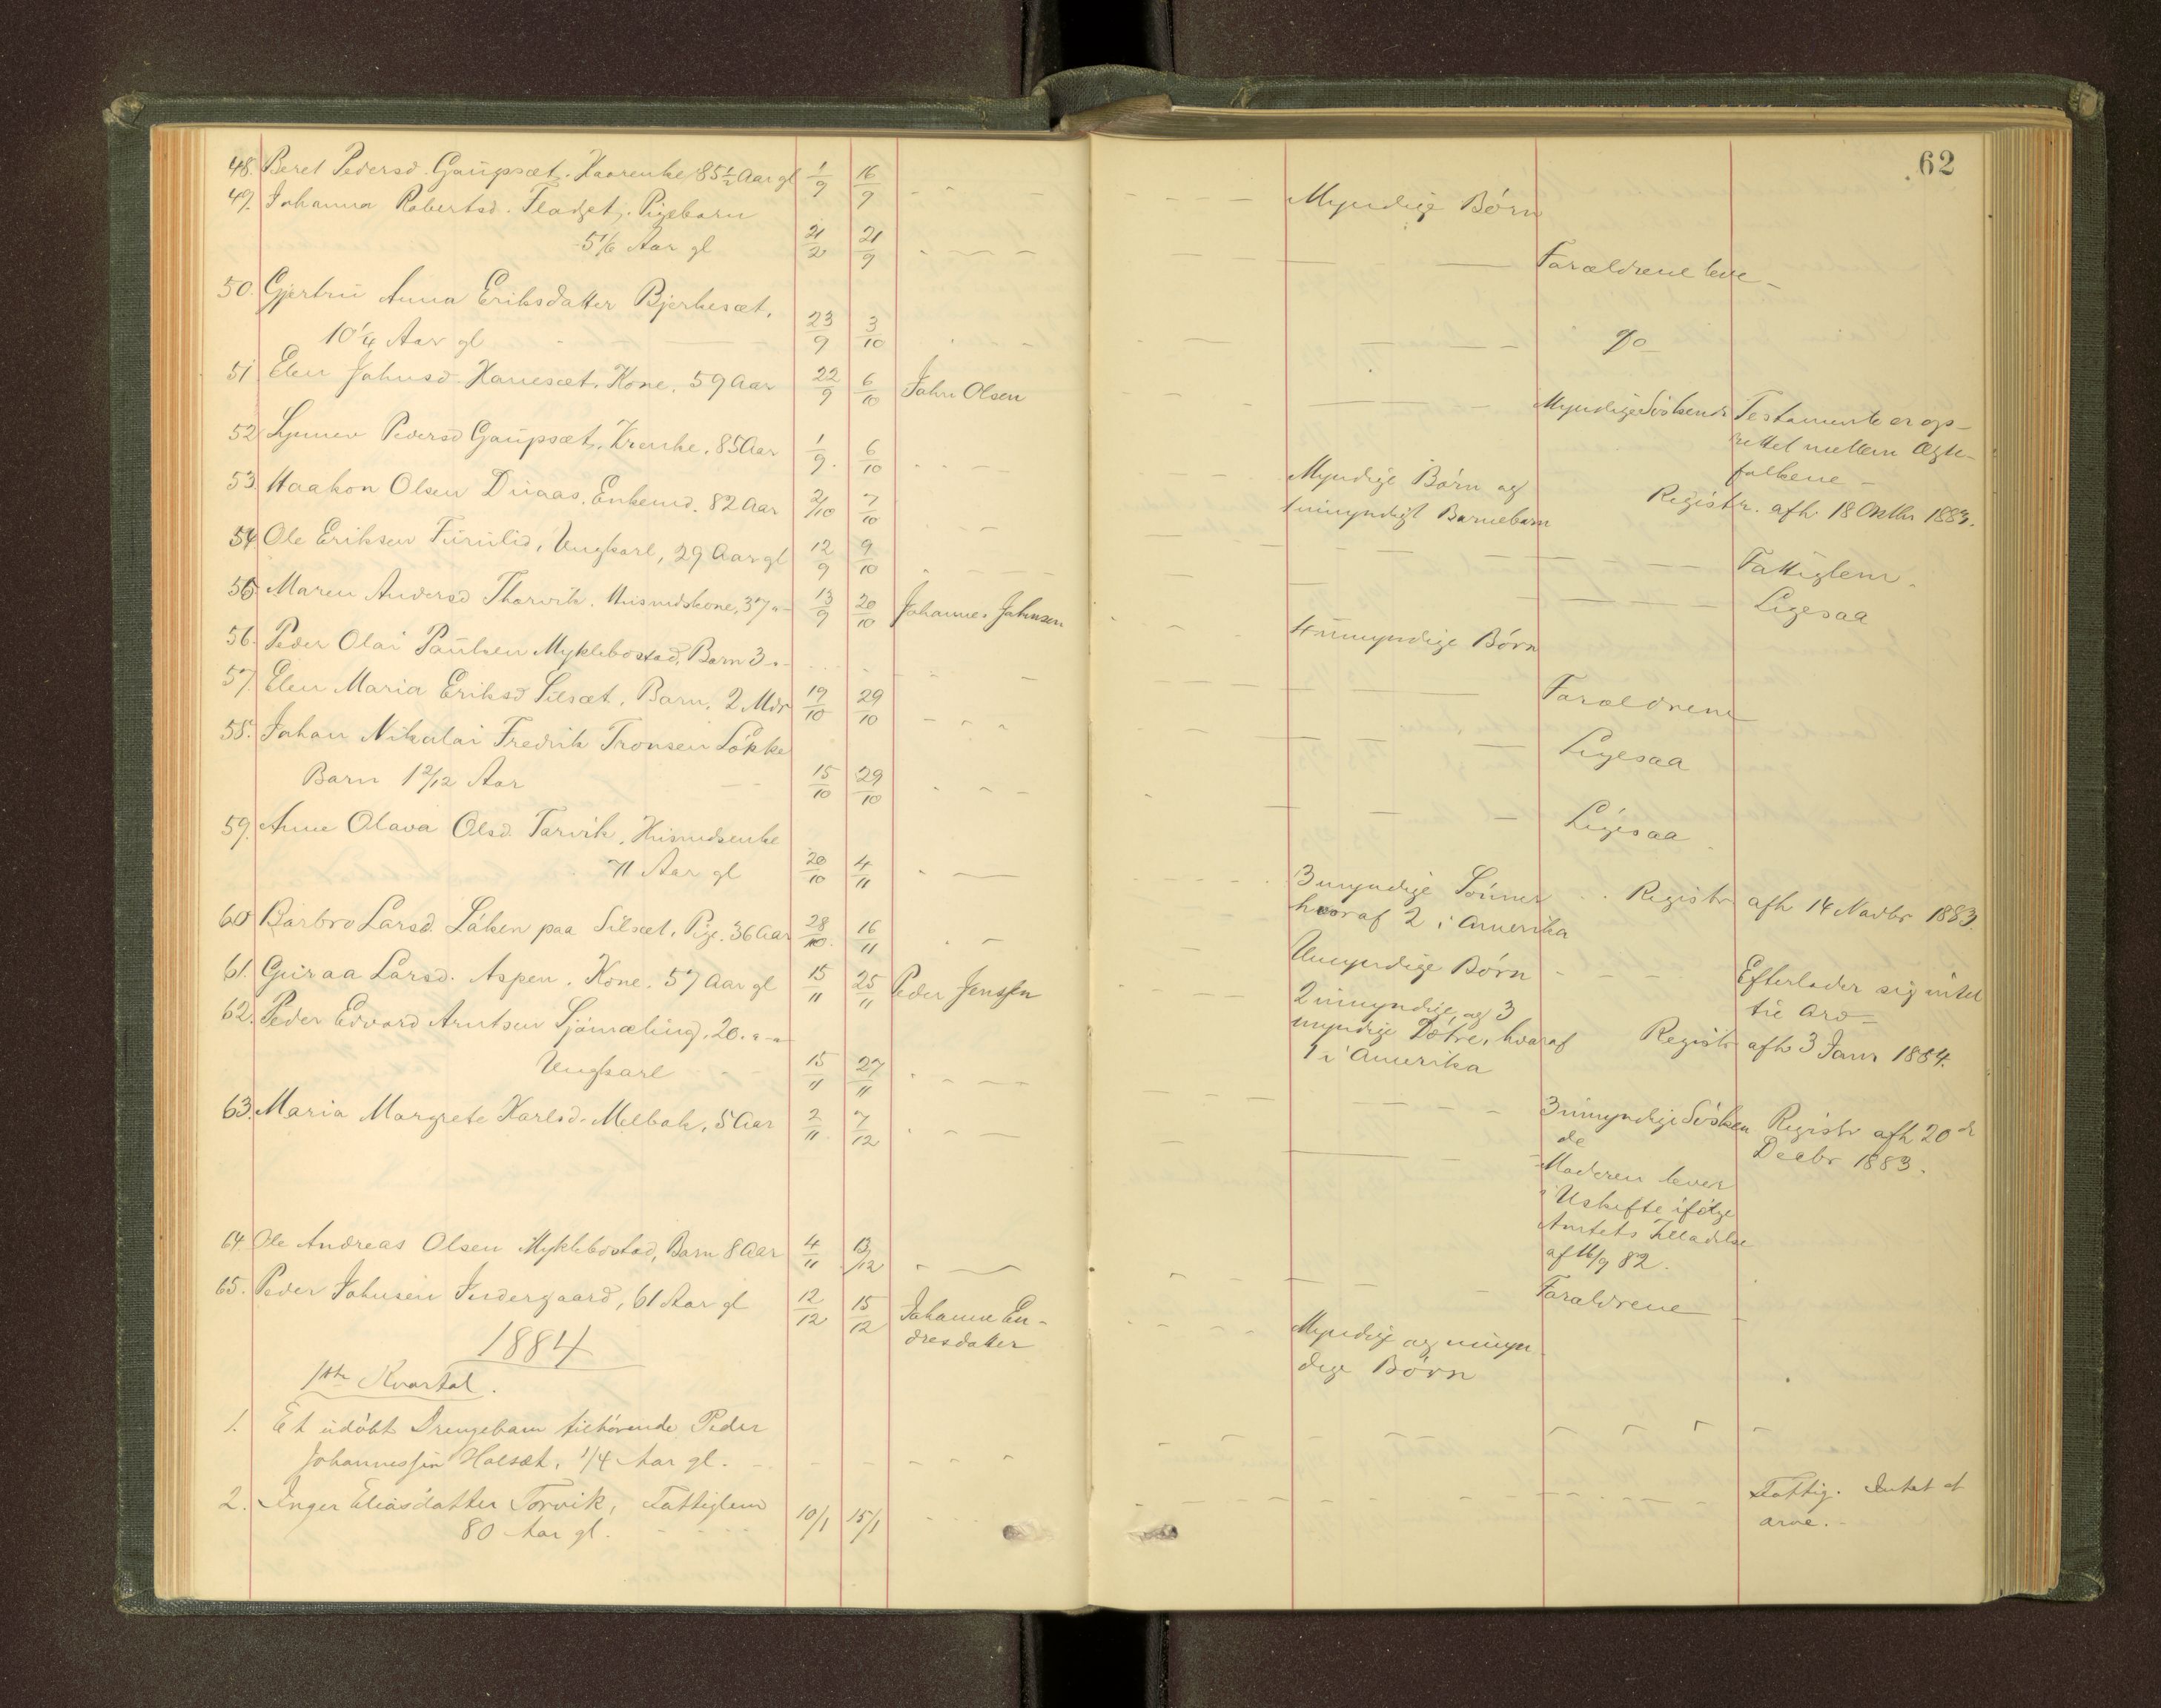 62
48. Beret Pedersd. Gaupsæt. Kaarenke 85 1/2 Aar gl 1/9 16/9
Myndige Børn
49. Johanna Robertsd. Fladset. Pigebarn
5 1/6 Aar gl 21/2 21/9
Forældrene leve
50. Gjertru Anna Eriksdatter Bjerkesæt,
10 1/4 Aar gl 23/9 3/10
do
51 Elen Johnsd. Hanesæt. Kone, 59 Aar 22/9 6/10 John Olsen
Myndige Söskende Testamente er op-
rettet mellem Ægte-
folkene
52 Synnev Pedersd Gaupsæt, Kaarenke, 85 Aar 1/9. 6/10
Myndige Børn og
1 umyndigt Barnebarn Registr. afh 18 Oktbr 1883.
53. Haakon Olsen Duaas. Enkemd. 82 Aar 2/10 7/10
54 Ole Eriksen Furulid, Ungkarl, 29 Aar gl 12/9 9/10
Fattiglem.
55 Maren Andersd Thorvik. Husmdskone, 37 13/9 20/10 Johannes Johnsen
Ligesaa
4 umyndige Børn
56. Peder Olai Paulsen Myklebostad, Barn 3
57. Elen Maria Eriksd Silsæt, Barn, 2 Mdr 19/10 29/10
Forældrene
58. Johan Nikolai Fredrik Tronsen Løkke
Barn 1 2/12 Aar 15/10 29/10
Ligesaa
Ligesaa
59. Anne Olava Olsd. Torvik, Husmdsenke
71 Aar gl 20/10 4/11
3 myndige Sønner Registr afh 14 Novbr 1883.
hvoraf 2 i Amerika
60 Barbro Larsd. Løken paa Silsæt, Pige. 36 Aar 28/10. 16/11
Umyndige Børn Efterlader sig intet
til Arv
61. Guraa Larsd. Aspen, Kone, 57 Aar gl 15/11 25/11 Peder Jenssen
2 umyndige, og 3
myndige Døtre, hvoraf Registr afh 3 Janr 1884.
1 i Amerika
62. Peder Edvard Arntsen Sjömæling, 20.
Ungkarl 15/11 27/11
3 umyndige Sösken Registr afh 20 de
de Decbr 1883.
63. Maria Margrete Karlsd. Melbak, 5 Aar 2/11. 7/12
Moderen lever
i Uskifte ifølge
Amtets Tilladelse
af 16/9 82.
64 Ole Andreas Olsen Myklebostad, Barn 8 Aar 4/11 13/12
Forældrene
65. Peder Johnsen Indergaard, 61 Aar gl 12/12 15/12 Johanne En-
dresdatter
Myndige og umyn
dige Børn
1884
1ste Kvartal.
1. Et udøbt Drengebarn tilhørende Peder
Johannessen Halsæt, 1/4 Aar gl.
2. Inger Eliasdatter Torvik, Fattiglem
80 Aar gl. 10/1 15/1
Fattig. Intet at
arve.